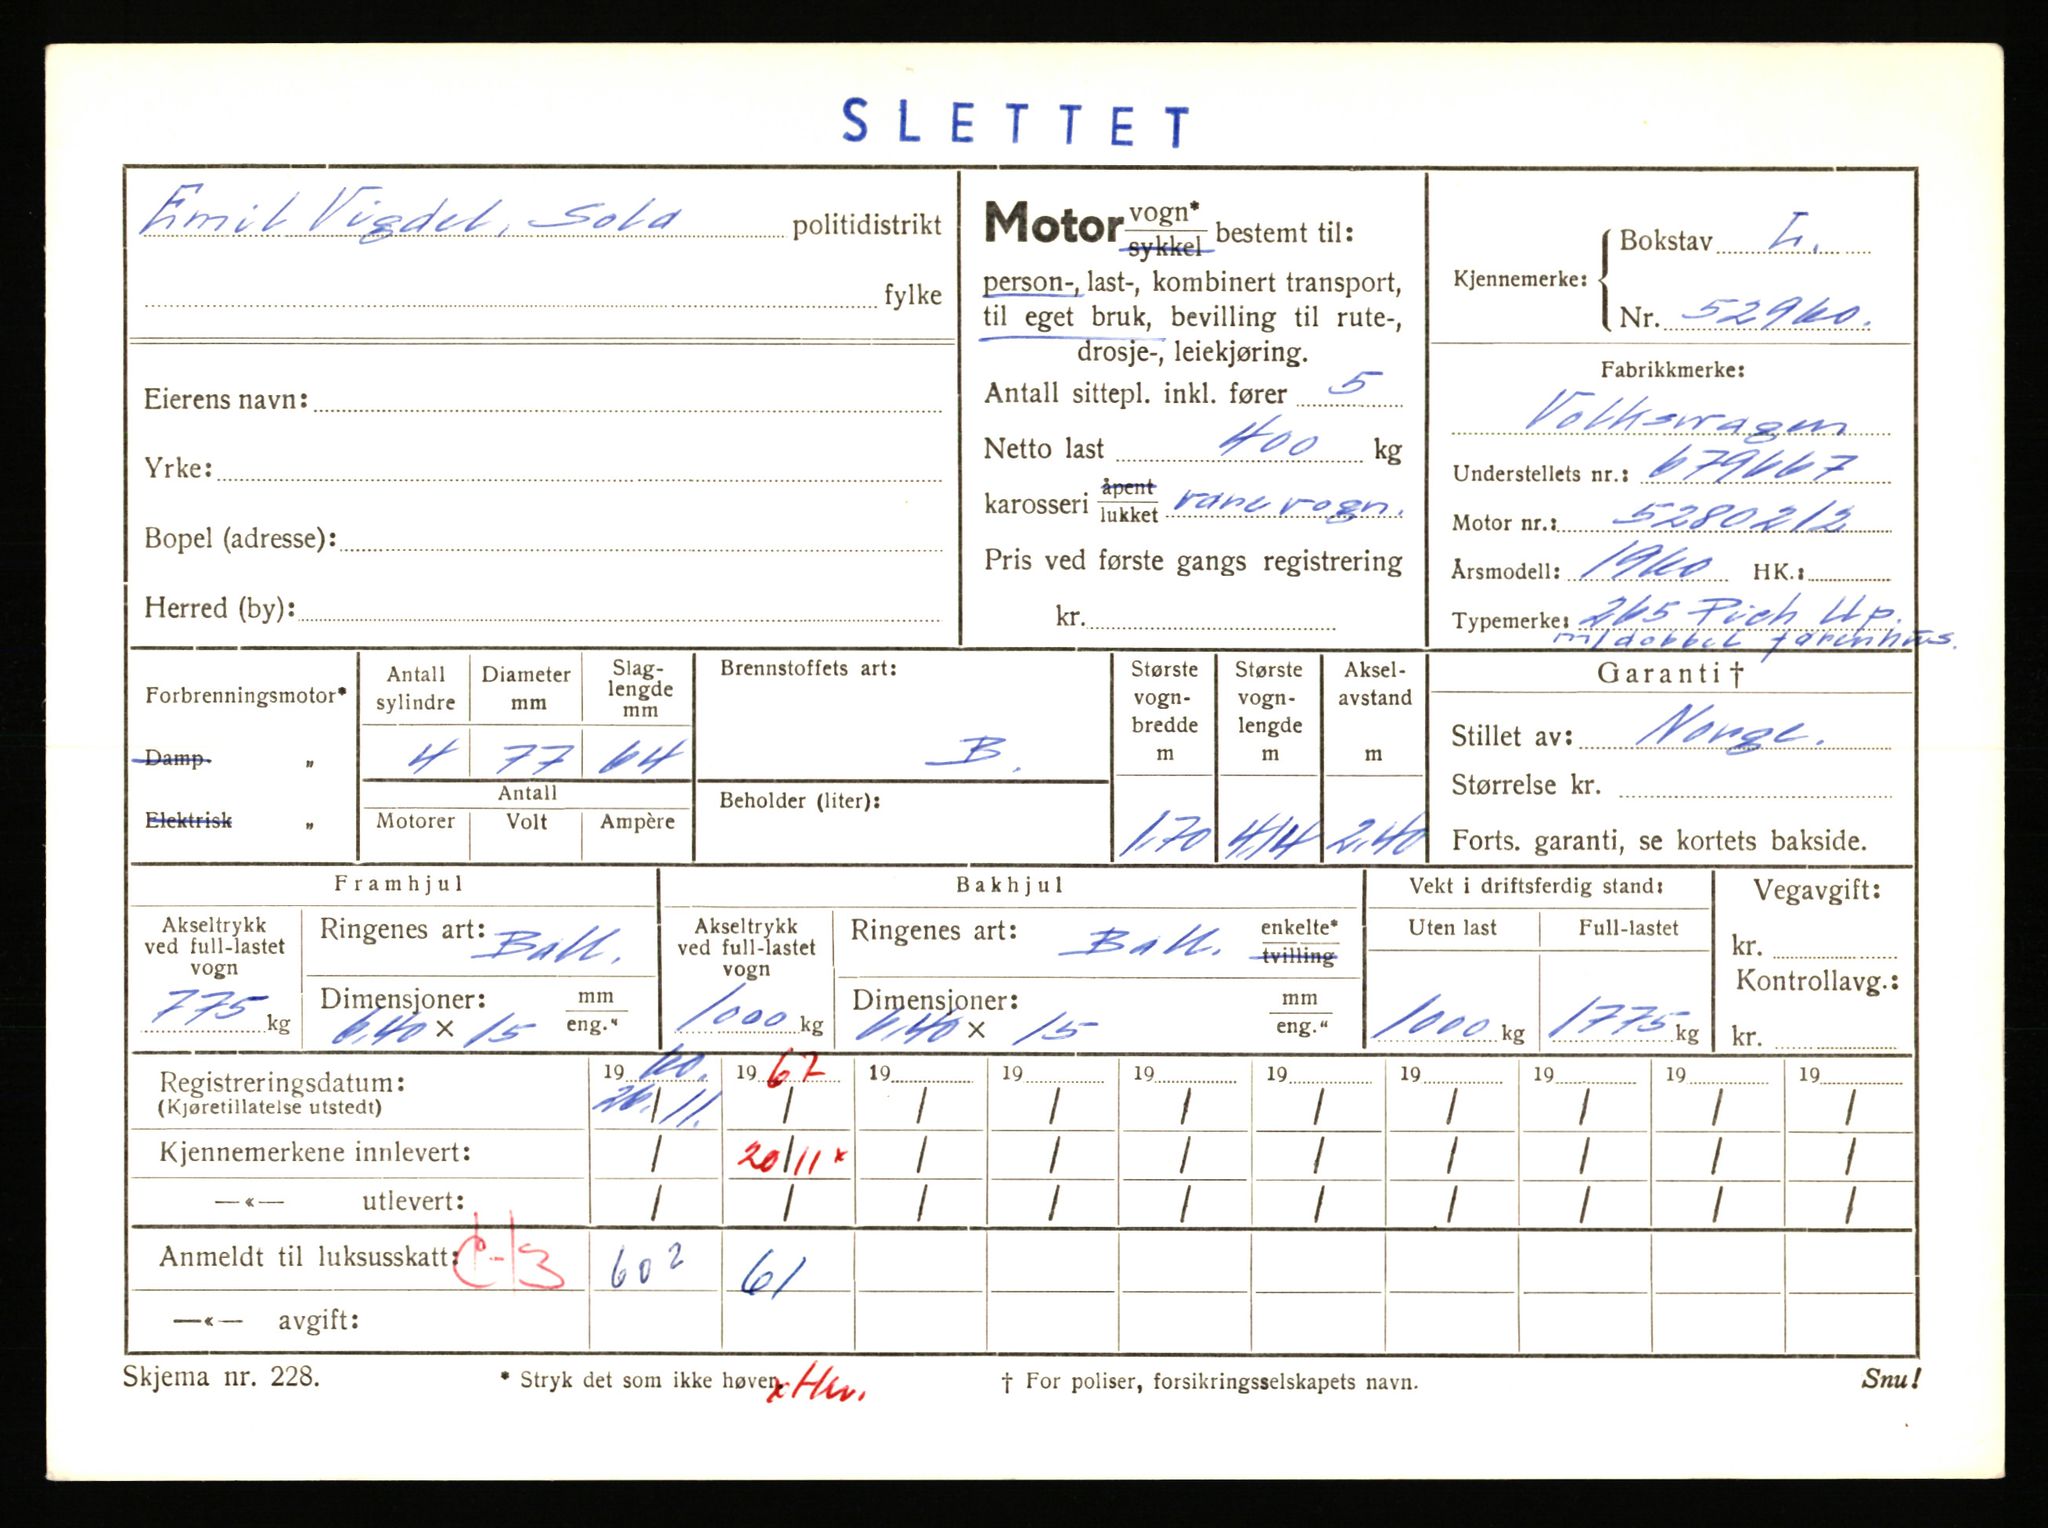 SLETTET
Emil Vigdel, Sola politidistrikt
fylke
Eierens navn:
Yrke:
Bopel (adresse):
Herred (by):
Motor vogn* sykkel bestemt til:
person-, last-, kombinert transport,
til eget bruk, bevilling til rute-,
drosje-, leiekjøring.
Antall sittepl. inkl. fører 5
Netto last 400 kg
karosseri åpent lukket varevogn.
Pris ved første gangs registrering
kr.
Kjennemerke: Bokstav L.
Nr. 52960.
Fabrikkmerke:
Volkswagen
Understellets nr.: 679667
Motor nr.: 5280212
Årsmodell: 1960 HK.:
Typemerke: 265 Pick Up.
m/dobbel førerhus.
Forbrenningsmotor*
Damp „
Elektrisk „
Antall sylindre Diameter mm Slaglengde mm
4 77 64
Antall
Motorer Volt Ampère
Brennstoffets art:
B.
Beholder (liter):
Største vognbredde m Største vognlengde m Akselavstand m
1,70 4,14 2,40
Garanti †
Stillet av: Norge.
Størrelse kr.
Forts. garanti, se kortets bakside.
Framhjul
Akseltrykk ved full-lastet vogn
775 kg
Ringenes art: Ball.
Dimensjoner: mm eng."
6,40 × 15
Bakhjul
Akseltrykk ved full-lastet vogn
1000 kg
Ringenes art: Ball. enkelte* tvilling
Dimensjoner: mm eng."
6,40 × 15
Vekt i driftsferdig stand:
Uten last Full-lastet
1000 kg 1775 kg
Vegavgift:
kr.
Kontrollavg.:
kr.
Registreringsdatum: 1960. 1967 19 19 19 19 19 19 19 19
(Kjøretillatelse utstedt) 26/11. / / / / / / / / /
Kjennemerkene innlevert: / 20/11 x / / / / / / / /
—«— utlevert: / / / / / / / / / /
Anmeldt til luksusskatt: 602 61
—«— avgift:
Skjema nr. 228. * Stryk det som ikke høver. x Hv. † For poliser, forsikringsselskapets navn. Snu!